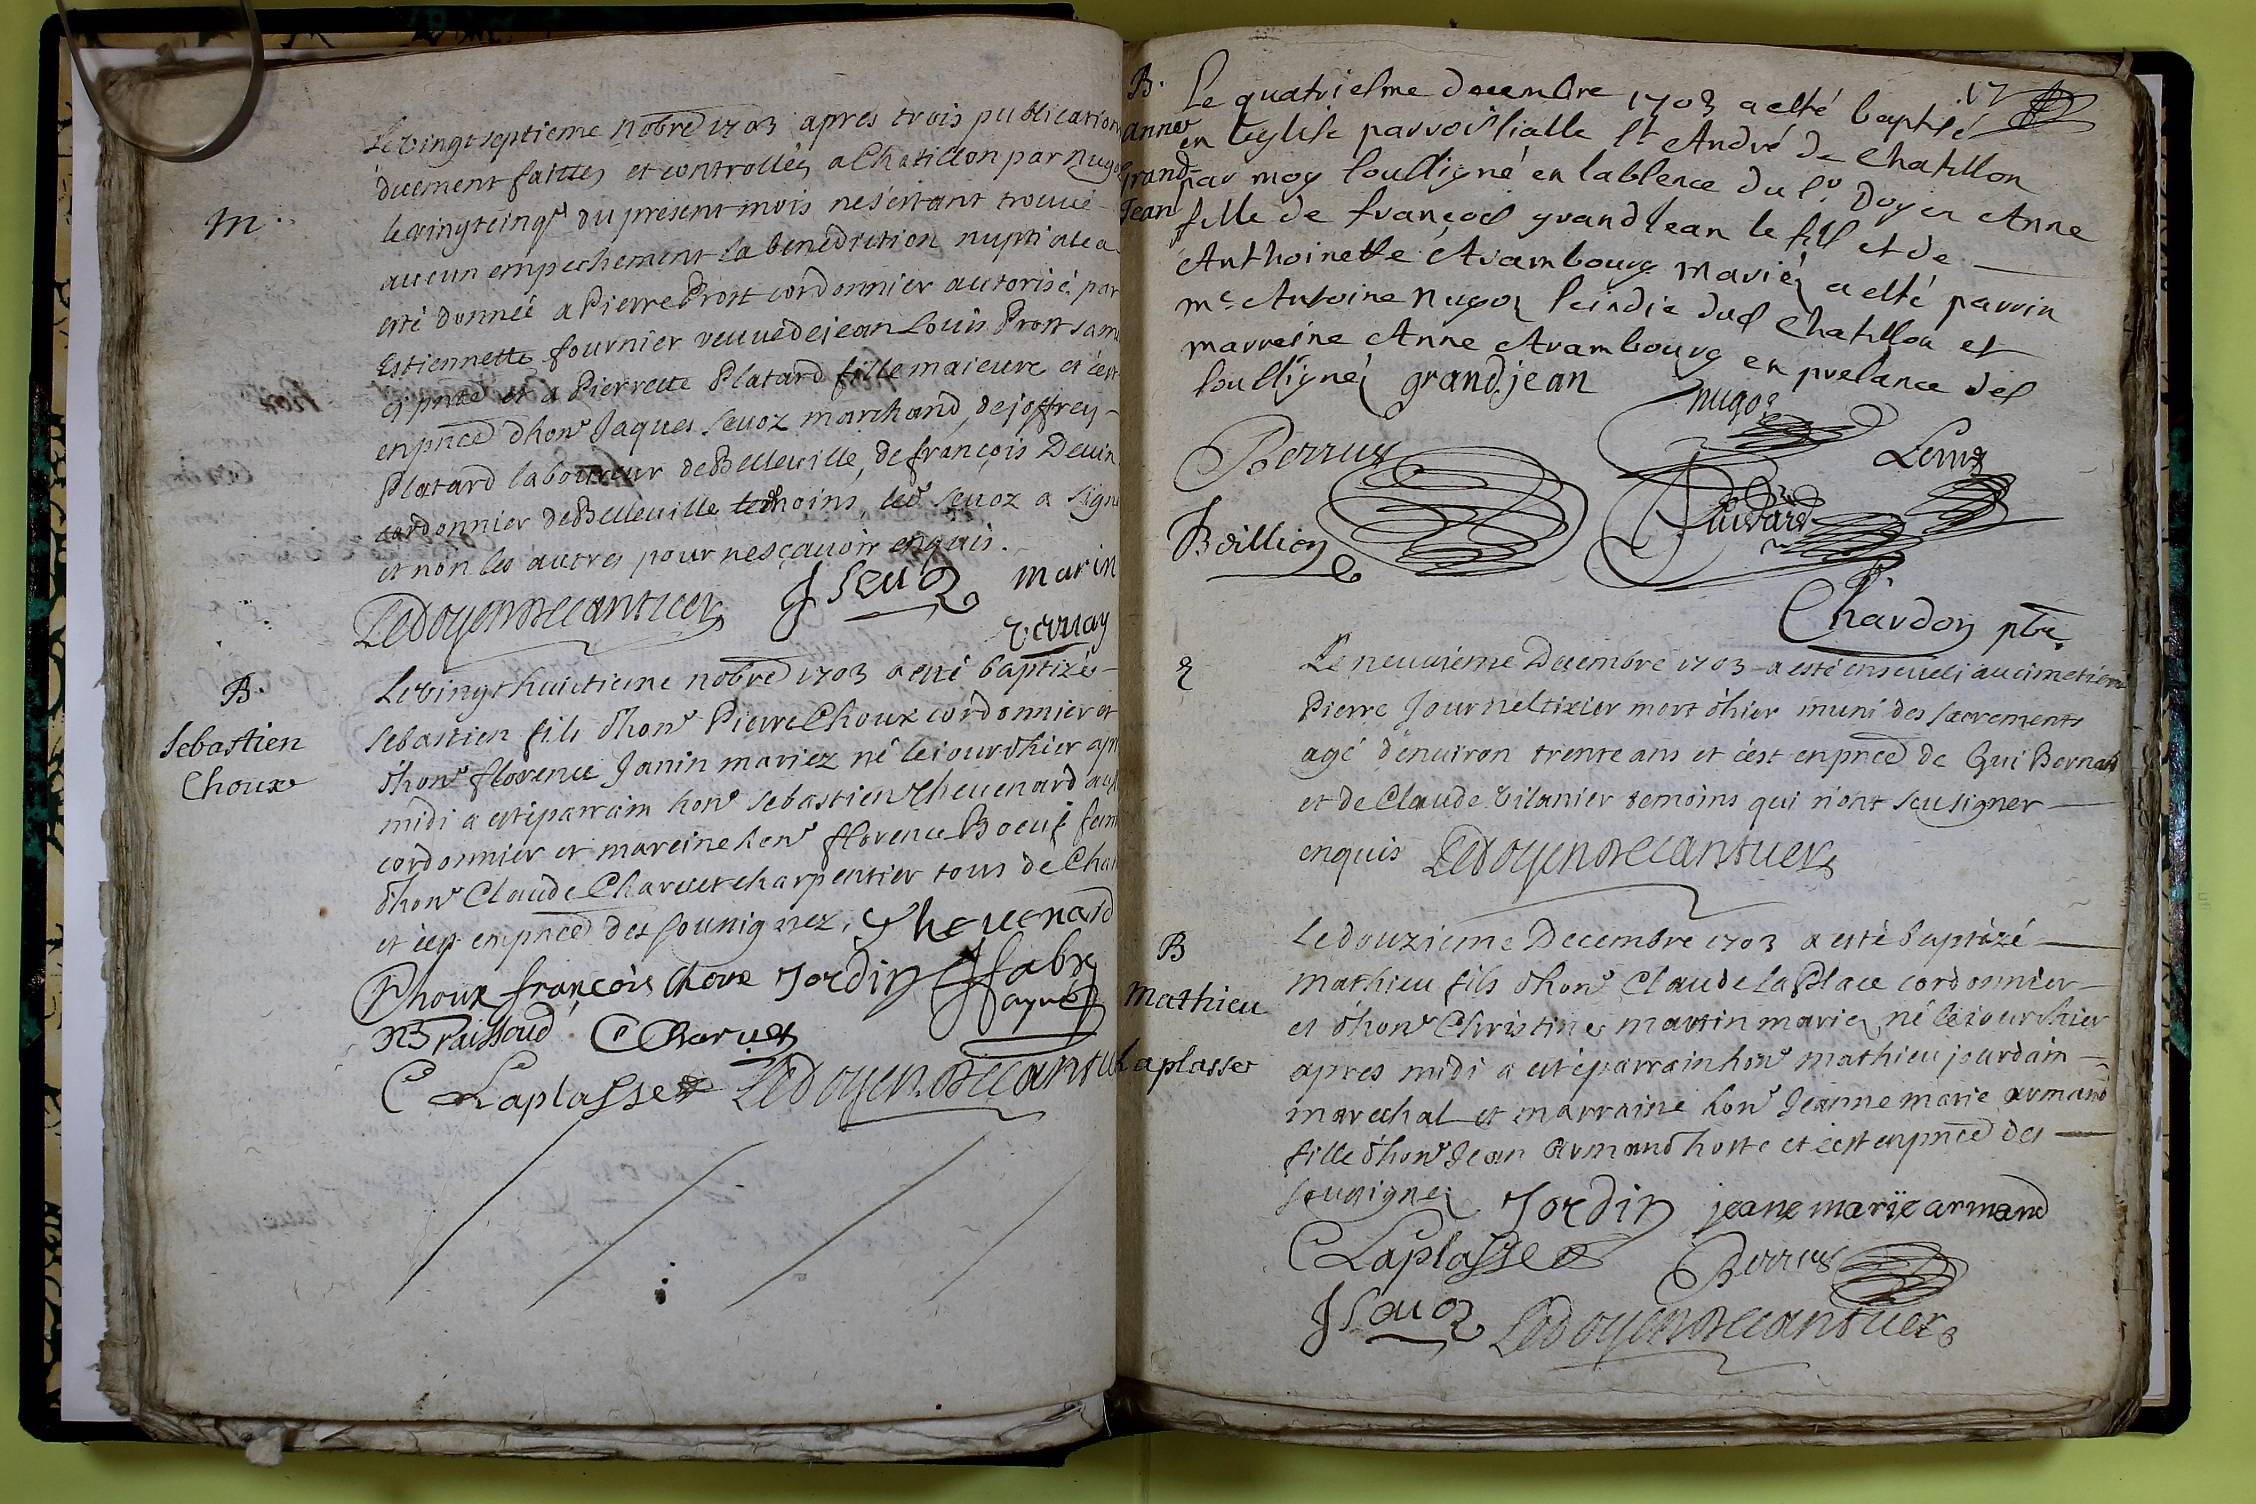 m.
Le vingt septieme nobre 1703 apres trois publications
duement faittes et controllées a Chatillon par Nugoz
le vingtcinqe du present mois ne s'estant trouué
aucun empechement la benediction nuptiale a
esté donnée a Pierre Prost cordonnier autorisé par
Estiennette fournier veuve de jean Louis Prost sa
cy pnte et a Pierrette Platard fille maieure et c'est
en pnce d'hone Jaques Seuoz marchand, de joffrey
Platard laboureur de Belleville, de françois Deuin
cordonnier de Belleville temoins, led Seuoz a signé
et non les autres pour ne sçauoir enquis.
Ledoyen de Cantuer J Seuoz marin
vernay
B.
Sebastien
Choux
Le vingt huictieme nobre 1703 a esté baptizé
Sebastien fils d'hone Pierre Choux cordonnier et
d'hone florence Janin mariez né le iour d'hier apr
midi a esté parrain hone Sebastien Cheuenard
cordonnier et mareine hone florence Boeuf fem
d'hone Claude Charuet charpentier tous de Cha
et c'est en pnce des sousignez. Cheuenard
P houx françois Choux Jordin fabry
ayné
Braissoud C Charuet
C Laplasse Ledoyen de Cantuer
17
B.
Anne
Grand
Jean
Le quatriesme decembre 1703 a esté baptisé
en leglise parroissialle st André de Chatillon
par moy soussigné en lablence du sr. Doyen Anne
fille de françois grand Jean le fils et de
Anthoinette Arambourg mariéz a esté parrin
me Antoine Nugoz scindic dud Chatillon et
marreine Anne Arambourg en presance des
soussignéz grandjean Nugoz
Perrus Lenuz
Boillion Guidard
Chardon ptre
Le neuuieme Decembre 1703 a esté enseueli au cimetiere
Pierre Journel tixier mort d'hier muni des sacrements
agé d'enuiron trente ans et c'est en pnce de Gui Bernard
et de Claude Vilanier temoins qui n'ont sceu signer
enquis Ledoyen de Cantuer
B
Mathieu
Laplasse
Le douzieme Decembre 1703 a esté baptizé
Mathieu fils d'hone Claude la Place cordonnier
et d'hone Christine martin mariez né le iour d'hier
apres midi a esté parrain hone mathieu jourdain
marechal et marraine hone Jeanne marie armand
fille d'hone Jean Armand hoste et c'est en pnce des
sousignez Jordin jeane marie armand
C Laplasse Perrus
J Seuoz Ledoyen de Cantuer